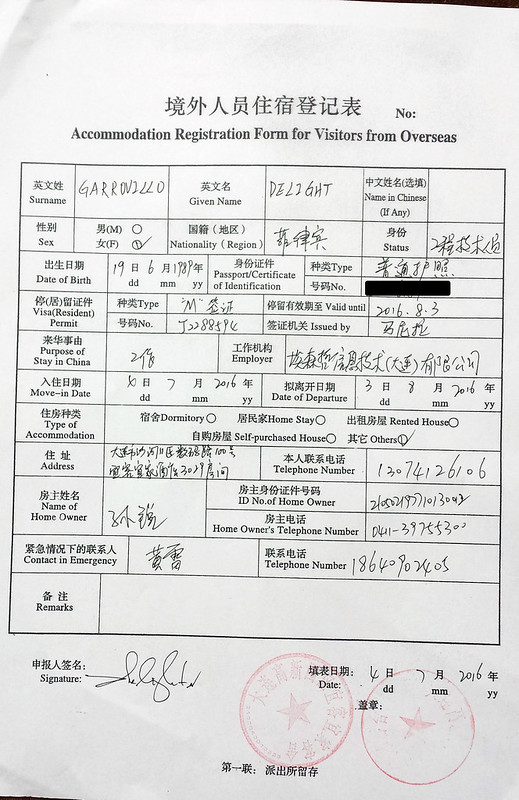 境外人员住宿登记表 No:
Accommodation Registration Form for Visitors from Overseas
英文姓 Surname GARROVILLO 英文名 Given Name DELIGHT 中文姓名(选填) Name in Chinese (If Any)
性别 Sex 男(M) ○ 女(F) ○ 国籍（地区） Nationality (Region) 菲律宾 身份 Status 工程技术人员
出生日期 Date of Birth 19 日 6 月 1989 年 dd mm yy 身份证件 Passport/Certificate of Identification 种类Type 普通护照
号码No.
停(居)留证件 Visa(Resident) Permit 种类Type "M"签证 停留有效期至 Valid until 2016.8.3
号码No. J2288594 签证机关 Issued by 马尼拉
来华事由 Purpose of Stay in China 工作 工作机构 Employer 埃森哲信息技术(大连)有限公司
入住日期 Move-in Date 4 日 7 月 2016 年 dd mm yy 拟离开日期 Date of Departure 3 日 8 月 2016 年 dd mm yy
住房种类 Type of Accommodation 宿舍Dormitory○ 居民家Home Stay○ 出租房屋 Rented House○
自购房屋 Self-purchased House○ 其它 Others○
住 址 Address 大连市沙河口区数码路100号 3029房间 本人联系电话 Telephone Number 13074126106
房主姓名 Name of Home Owner 孙锐 房主身份证件号码 ID No.of Home Owner
房主电话 Home Owner's Telephone Number 0411-39755300
紧急情况下的联系人 Contact in Emergency 黄雷 联系电话 Telephone Number 18640902405
备 注 Remarks
申报人签名: Signature: 填表日期: Date: 4 日 7 月 2016 年 dd mm yy
盖章:
第一联: 派出所留存